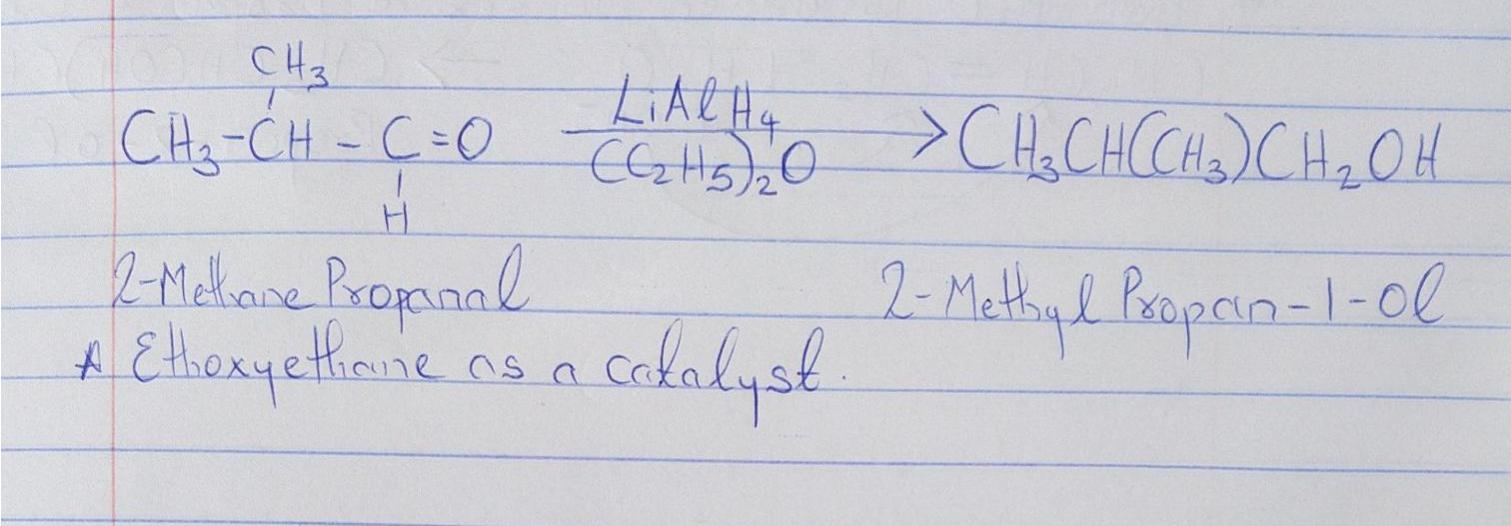 CH₃
CH₃-CH-C=O LiAlH₄ → CH₃CH(CH₃)CH₂OH
(C₂H₅)₂O
H
2-Methane Propanal 2-Methyl Propan-1-Ol
* Ethoxyethane as a catalyst.